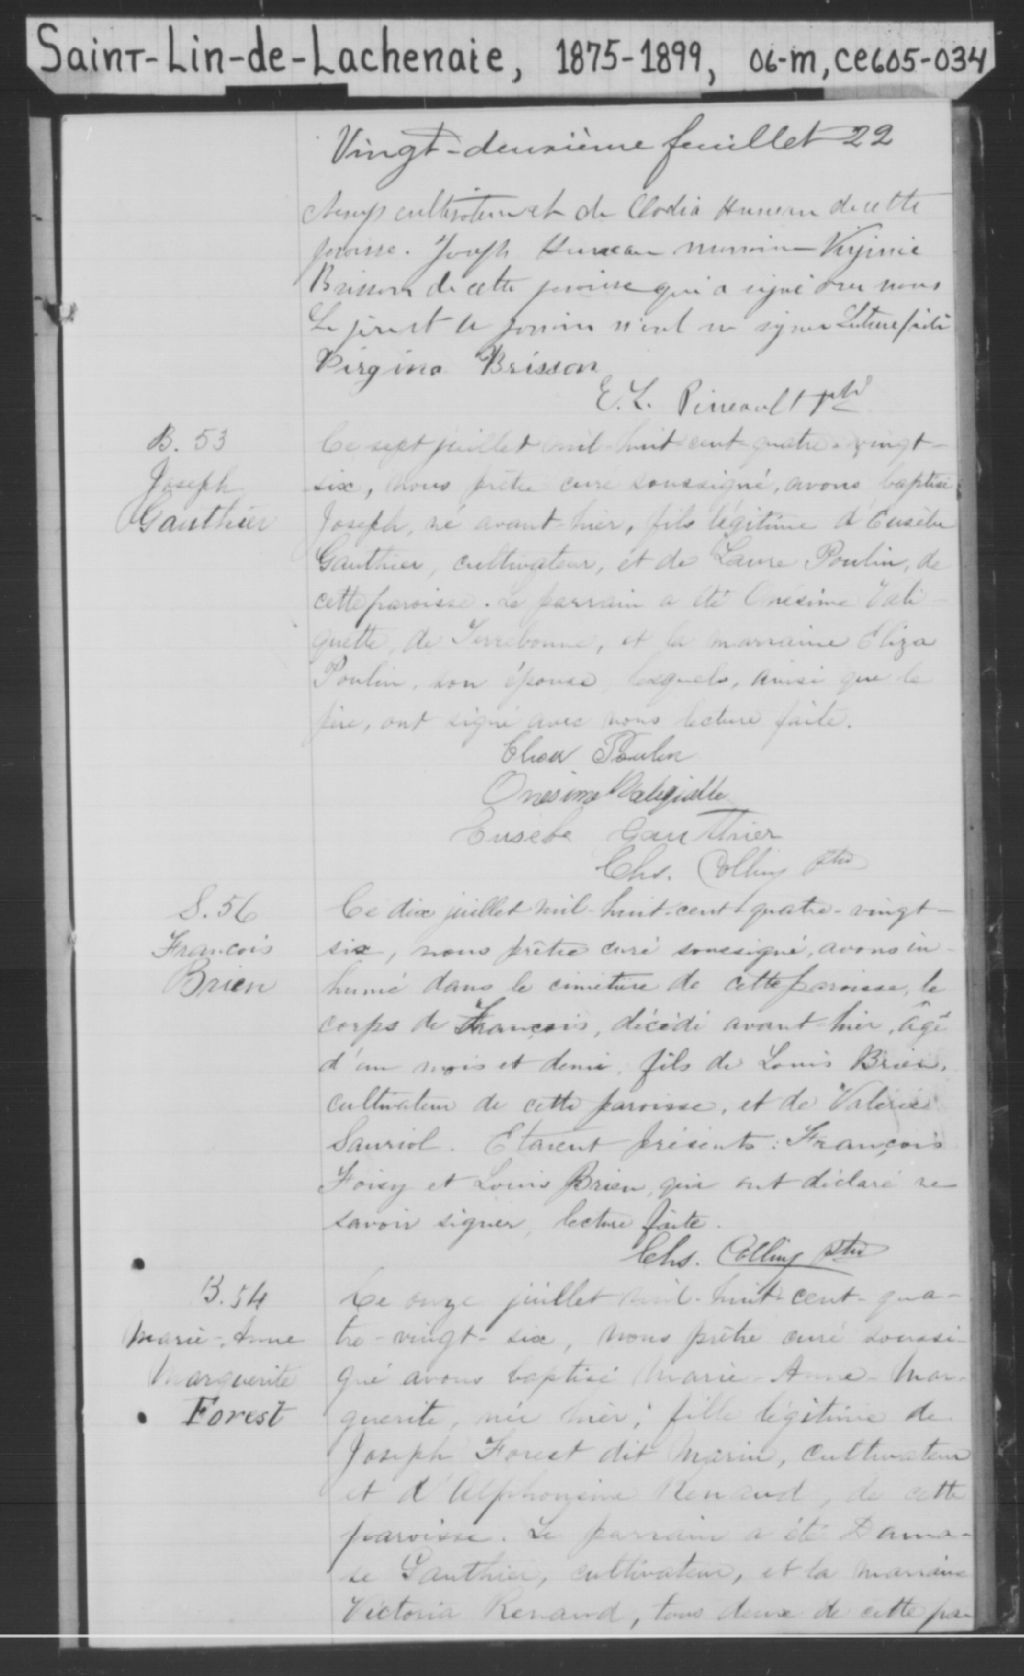 Saint-Lin-de-Lachenaie, 1875-1899, 06-M, CE605-034
Vingt-deuxième feuillet 22
cultivateur et de Clodia de cette
paroisse. Joseph Virginie
Brisson de cette paroisse qui a signé avec nous
Le père et le parrain n'ont su signer Lecture faite
Virgina Brisson
E. L. Pineault ptre
B. 53
Joseph
Gauthier
Ce sept juillet mil-huit-cent-quatre-vingt-
six, nous prêtre curé soussigné, avons baptisé
Joseph, né avant-hier, fils légitime d'Eusèbe
Gauthier, cultivateur, et de Laure Poulin, de
cette paroisse. Le parrain a été Onésime Vali-
quette, de Terrebonne, et la marraine Eliza
Poulin, son épouse, lesquels, ainsi que le
père, ont signé avec nous lecture faite.
Elisa Poulin
Onésime
Eusebe Gauthier
Chs. Collin ptre
S. 56
François
Brien
Ce dix juillet mil-huit-cent-quatre-vingt-
six, nous prêtre curé soussigné, avons in-
humé dans le cimetière de cette paroisse, le
corps de François, décédé avant-hier, âgé
d'un mois et demi, fils de Louis Brien,
cultivateur de cette paroisse, et de Valérie
Sauriol. Etaient présents: François
Foisy et Louis Brien, qui ont déclaré ne
savoir signer, lecture faite.
Chs. Collin ptre
B. 54
Marie-Anne
Marguerite
Forest
Ce onze juillet mil-huit-cent-qua-
tre-vingt-six, nous prêtre curé soussi-
gné avons baptisé Marie-Anne-Mar-
guerite, née hier, fille légitime de
Joseph Forest dit Marin, cultivateur
et d'Alphonsine Renaud, de cette
paroisse. Le parrain a été Dama-
se Gauthier, cultivateur, et la marraine
Victoria Renaud, tous deux de cette pa-